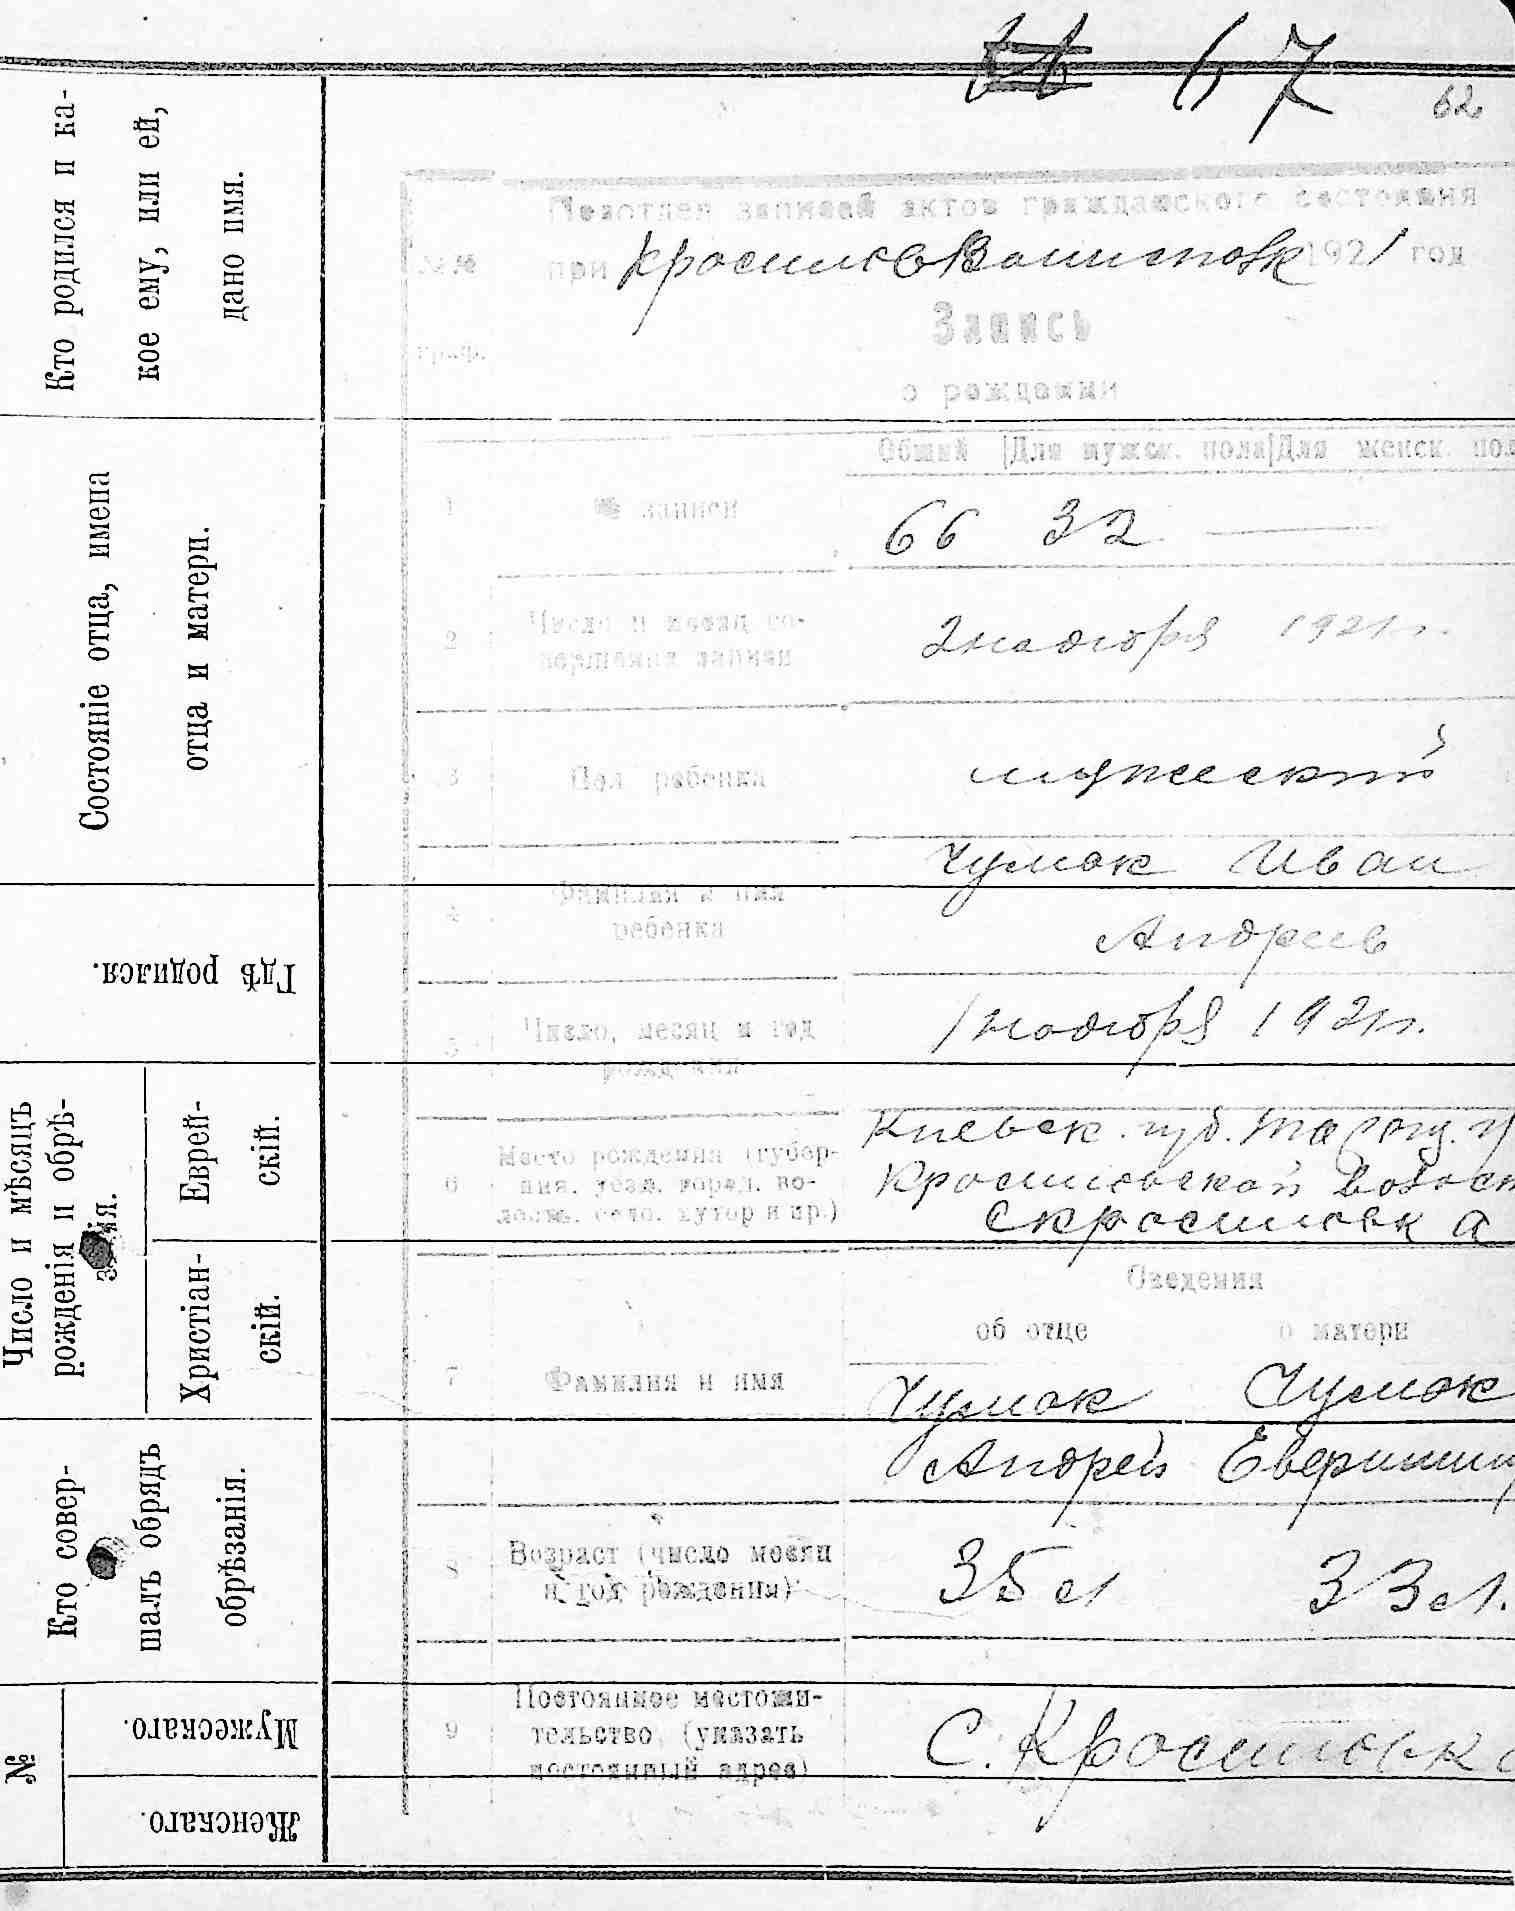 67
62
Кто родился и ка-
кое ему, или ей,
дано имя.
Состояніе отца, имена
отца и матери.
Гдѣ родился.
Число и мѣсяцъ
рожденія и обрѣ-
занія.
Еврей-
скій.
Христіан-
скій.
Кто совер-
шалъ обрядъ
обрѣзанія.
№
Мужескаго.
Женскаго.
Подотдел записей актов гражданского состояния
№№ при 1921 год
граф.
Запись
о рождении
Общий Для мужск. пола Для женск. пол
1 № записи 66 32 —
2 Число и месяц со-
вершения записи
2 ноября 1921 г.
3 Пол ребенка мужеский
4 Фамилия и имя
ребенка
Чумак Иван
Андреев
5 Число, месяц и год
рождения
1 ноября 1921 г.
6 Место рождения (губер-
ния, уезд, город, во-
лость, село, хутор и пр.)
Киевск. губ.
Сведения
об отце о матери
7 Фамилия и имя
Чумак Чумак
Андрей
8 Возраст (число месяц
и год рождения)
35 л 33 л.
9 Постоянное местожи-
тельство (указать
постоянный адрес)
С.